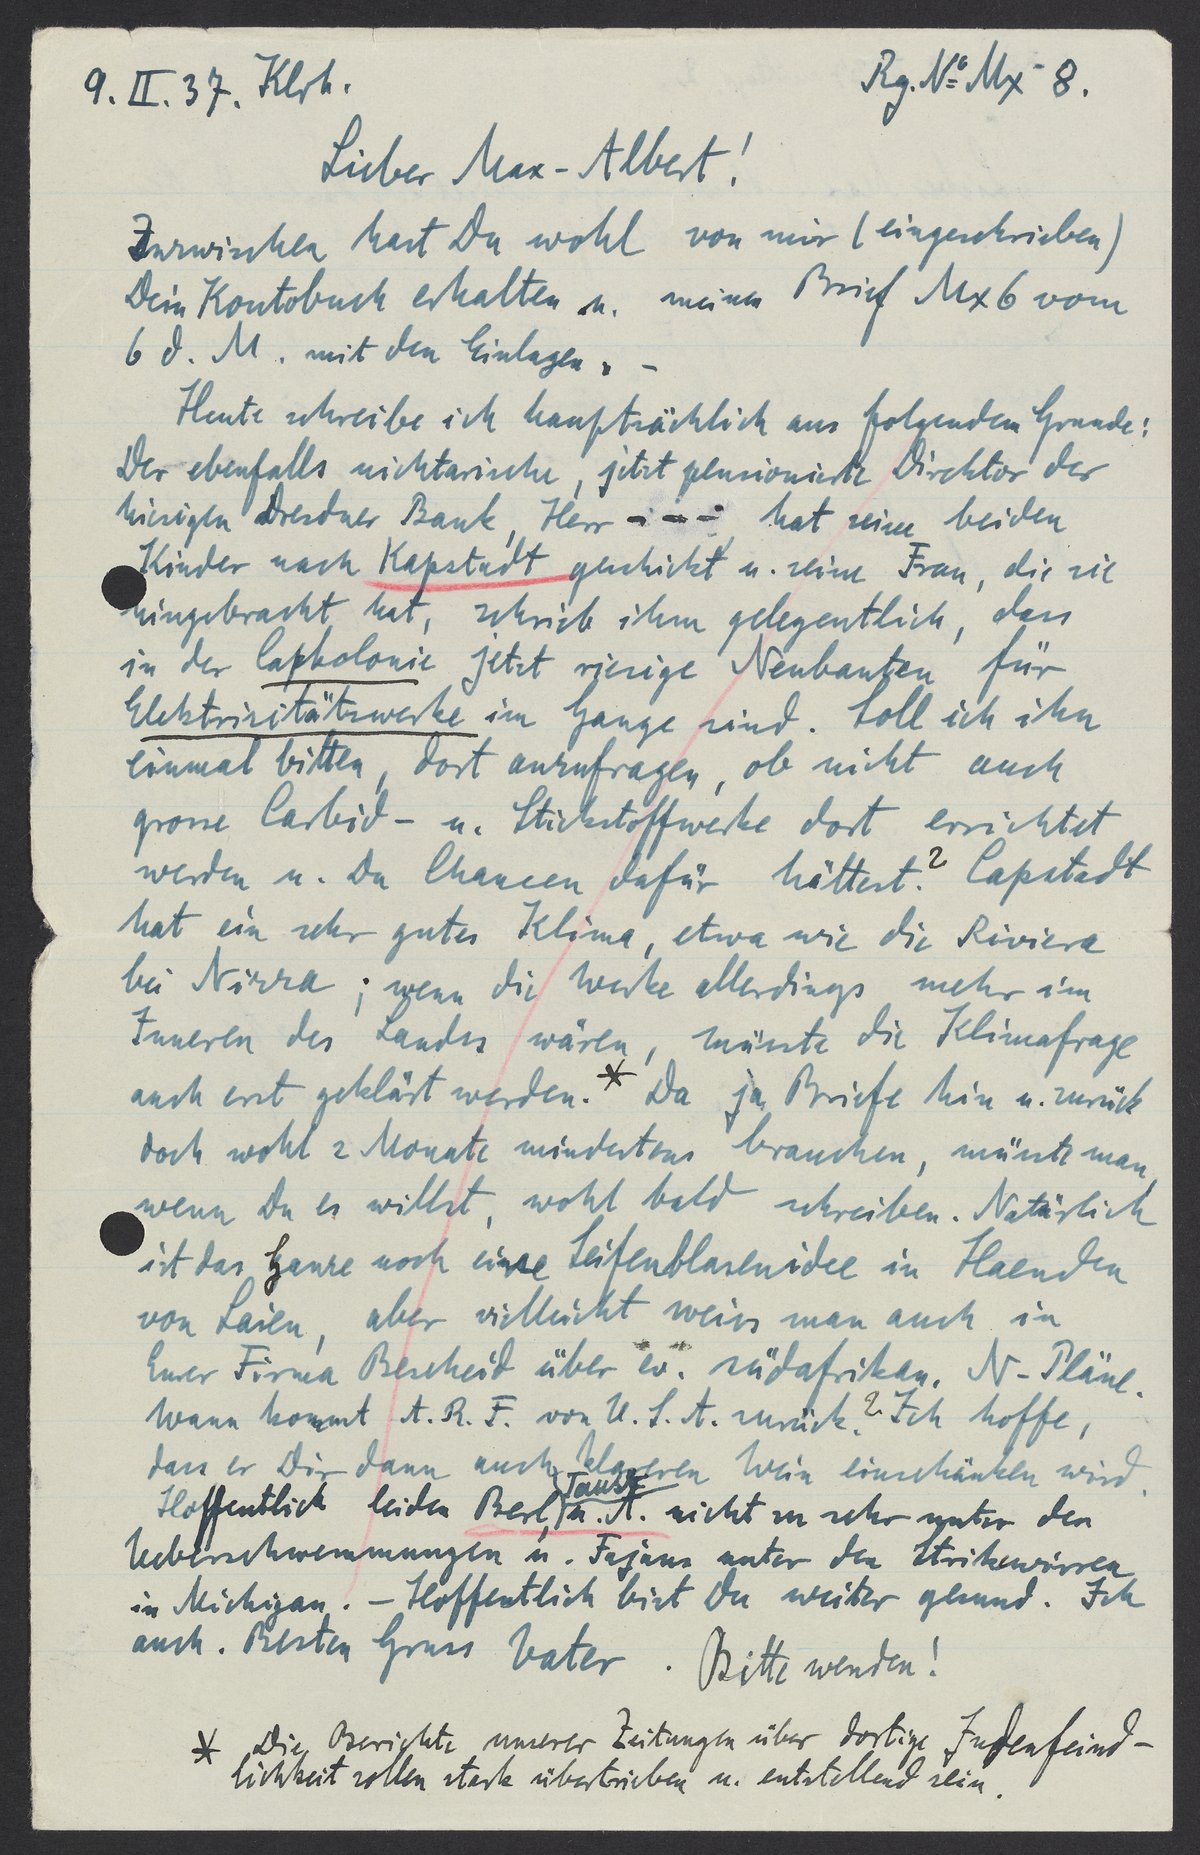 9. II. 37. Klrh.
Rg. No Mx 8.
Lieber Max-Albert!
Inzwischen hast Du wohl von mir (eingeschrieben)
Dein Kontobuch erhalten u. meinen Brief Mx6 vom
6 d. M. mit den Einlagen. -
Heute schreibe ich hauptsächlich aus folgendem Grunde:
Der ebenfalls nichtarische, jetzt pensionierte Direktor der
hiesigen Dresdner Bank, Herr - - - -, hat seine beiden
Kinder nach Kapstadt geschickt u. seine Frau, die sie
hingebracht hat, schrieb ihm gelegentlich, dass
in der Capkolonie jetzt riesige Neubauten für
Elektrizitätswerke im Gange sind. Soll ich ihn
einmal bitten, dort anzufragen, ob nicht auch
grosse Carbid- u. Stickstoffwerke dort errichtet
werden u. Du Chancen dafür hättest.? Capstadt
hat ein sehr gutes Klima, etwa wie die Riviera
bei Nizza; wenn die Werke allerdings mehr im
Inneren des Landes wären, müsste die Klimafrage
auch erst geklärt werden.* Da ja Briefe hin u. zurück
doch wohl 2 Monate mindestens brauchen, müsste man,
wenn Du es willst, wohl bald schreiben. Natürlich
ist das Ganze noch eine Seifenblasenidee in Haenden
von Laien, aber vielleicht weiss man auch in
Eurer Firma Bescheid über ev. südafrikan. N-Pläne.
Wann kommt A. R. F. von U. S. A. zurück.? Ich hoffe,
dass er Dir dann auch klareren Wein einschänken wird.
Hoffentlich leiden Berl, Tausz u. A. nicht zu sehr unter den
Ueberschwemmungen u. Fajans unter den Strikewirren
in Michigan. - Hoffentlich bist Du weiter gesund. Ich
auch. Besten Gruss Vater. Bitte wenden!
* Die Berichte unserer Zeitungen über dortige Judenfeind-
lichkeit sollen stark übertrieben u. entstellend sein.